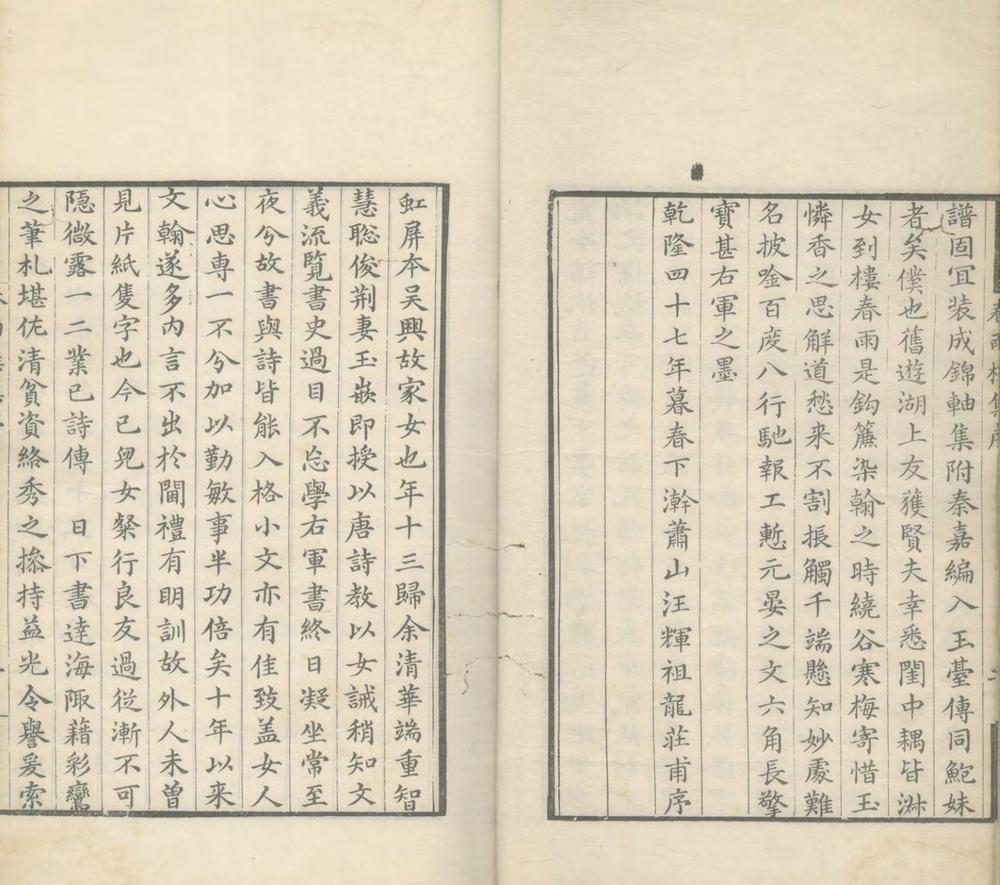 譜固宜装成錦軸集附秦嘉編入玉臺傳同鮑妹
者矣僕也舊遊湖上友獲賢夫幸悉閨中耦皆淑
女到樓春雨是鈎簾染翰之時繞谷寒梅寄惜玉
憐香之思解道愁来不割振觸千端懸知妙處難
名披唫百度八行馳報工慙元晏之文六角長擎
寶甚右軍之墨
乾隆四十七年暮春下澣蕭山汪輝祖龍莊甫序
虹屏本吴興故家女也年十三歸余清華端重智
慧聡俊荆妻玉嵌即授以唐詩教以女誡稍知文
義流覽書史過目不忘學右軍書終日凝坐常至
夜兮故書與詩皆能入格小文亦有佳致盖女人
心思専一不兮加以勤敏事半功倍矣十年以来
文翰遂多内言不出於閫禮有明訓故外人未曽
見片紙隻字也今已兒女粲行良友過從漸不可
隠微露一二業已詩傳十日下書達海陬藉彩鸞
之筆札堪佐清貧資絡秀之摻持益光令譽爰索